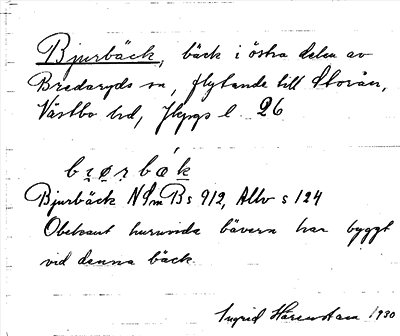 Bjurbäck, bäck i östra delen av
Bredaryds sn, flytande till Storån,
Västbo hd, Jkpgs l. 26
bɪ̣ørbäk
Bjurbäck NSmB s 912, Allv s 124
Obekant huruvida bävern har byggt
vid denna bäck.
Ingrid 1930